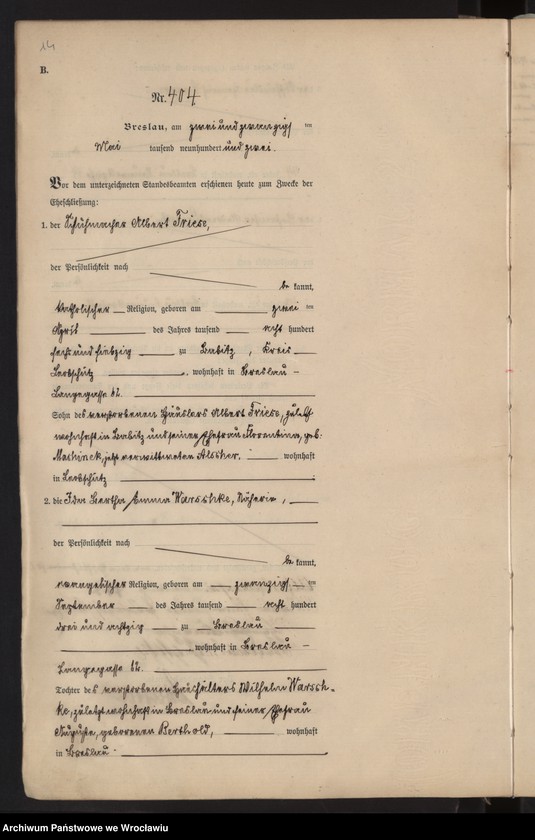 14
B.
Nr. 404
Breslau, am zwei und zwanzigsten
Mai tausend neunhundert und zwei.
Vor dem unterzeichneten Standesbeamten erschienen heute zum Zwecke der
Eheschließung:
1. der Schuhmacher Albert Friese,
der Persönlichkeit nach
be kannt,
katholischer Religion, geboren am zwei ten
April des Jahres tausend acht hundert
sechs und siebzig zu Babitz, Kreis
Leobschütz, wohnhaft in Breslau -
Langegasse 62.
Sohn des verstorbenen Häuslers Albert Friese, zuletzt
wohnhaft in Babitz und seiner Ehefrau Florentina, geb.
jetzt verwittweten wohnhaft
in Leobschütz
2. die Ida Bertha Emma Warschke, Näherin,
der Persönlichkeit nach
be kannt,
evangelischer Religion, geboren am zwanzigs ten
September des Jahres tausend acht hundert
drei und achtzig zu Breslau
, wohnhaft in Breslau -
Langegasse 62.
Tochter des verstorbenen Haushälters Wilhelm Warsch-
ke, zuletzt wohnhaft in Breslau und seiner Ehefrau
Auguste, geborenen Berthold, wohnhaft
in Breslau -
Archiwum Państwowe we Wrocławiu